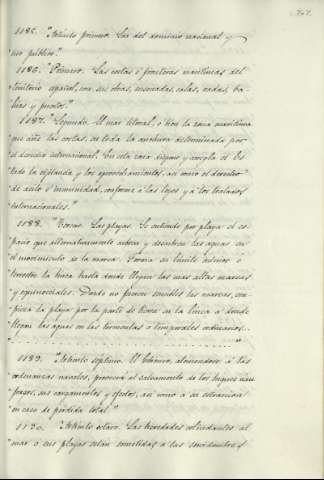 1185. "Artículo primero. Son del dominio nacional y
uso público."
1186. "Primero. Las costas ó fronteras marítimas del
"territorio español, con sus obras, ensenadas, calas, radas, ba-
"hías y puertos."
1187. "Segundo. El mar litoral, ó bien la zona marítima
"que ciñe las costas, en toda la anchura determinada por
"el derecho internacional. En esta zona dispone y arregla el Es-
"tado la vigilancia y los aprovechamientos, así como el derecho
"de asilo é inmunidad, conforme á las leyes y á los tratados
"internacionales."
1188. "Tercero. Las playas. Se entiende por playa el es-
"pacio que alternativamente cubren y descubren las aguas en
"el movimiento de la marea. Forma su límite interior ó
"terrestre la línea hasta donde llegan las más altas mareas
"y equinocciales. Donde no fueren sensibles las mareas, em-
"pieza la playa por la parte de tierra en la línea á donde
"llegan las aguas en las tormentas ó temporales ordinarios.
1189. "Artículo séptimo. El Gobierno, atemperándose á las
"ordenanzas navales, proveerá al salvamento de los buques náu-
"fragos, sus cargamentos y efectos, así como á su extracción
"en caso de pérdida total."
1190. "Artículo octavo. Las heredades colindantes al
"mar ó sus playas están sometidas á las servidumbres